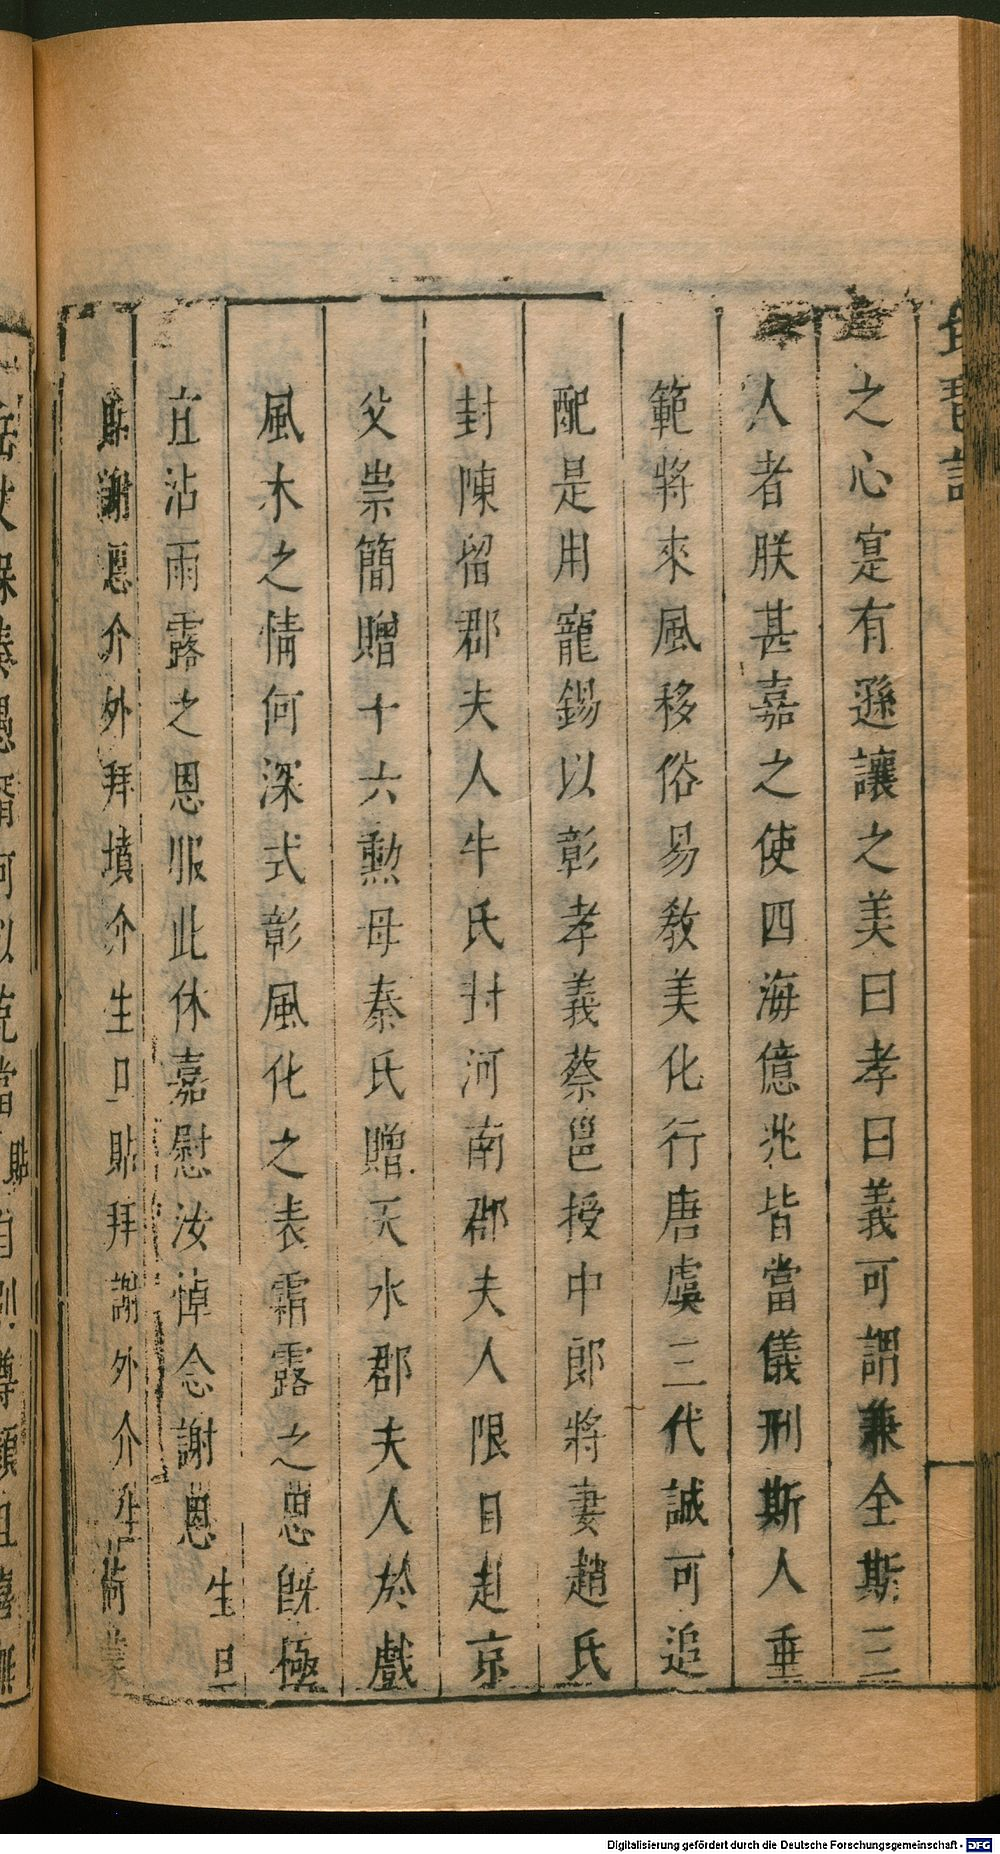 琵琶記
之心寔有遜讓之美曰孝曰義可謂兼全斯三
人者朕甚嘉之使四海億兆皆當儀刑斯人垂
範將來風移俗易敎美化行唐虞三代誠可追
配是用寵錫以彰孝義蔡邕授中郎將妻趙氏
封陳留郡夫人牛氏封河南郡夫人限日赴京
父崇簡贈十六勲母秦氏贈天水郡夫人於戲
風木之情何深式彰風化之表霜露之思旣極
宜沾雨露之恩服此休嘉慰汝悼念謝恩 生旦
貼謝恩介外拜墳介生旦貼拜謝外介
Digitalisierung gefördert durch die Deutsche Forschungsgemeinschaft - DFG